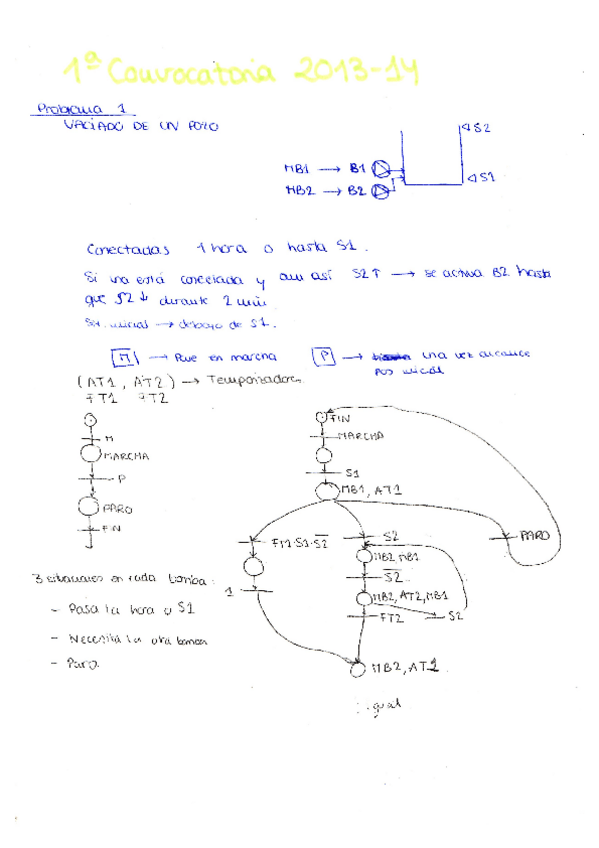 1ª Convocatoria 2013-14
Problema 1
VACIADO DE UN POZO
S2
MB1 → B1
S1
MB2 → B2
Conectadas 1 hora o hasta S1.
Si una está conectada y aun así S2↑ → se activa B2 hasta
que S2↓ durante 2 min
Sit. inicial → debajo de S1.
M → Pone en marcha
P → una vez alcance
pos inicial
(AT1, AT2) → Temporizadores
FT1 FT2
M
MARCHA
P
PARO
FIN
FIN
MARCHA
S1
MB1, AT1
FT1·S1·S2
S2
PARO
MB2, MB1
S2
1
MB2, AT2, MB1
FT2
S2
MB2, AT1
igual
3 situaciones en cada bomba:
- Pasa la hora o S1
- Necesita la otra bomba
- Paro.